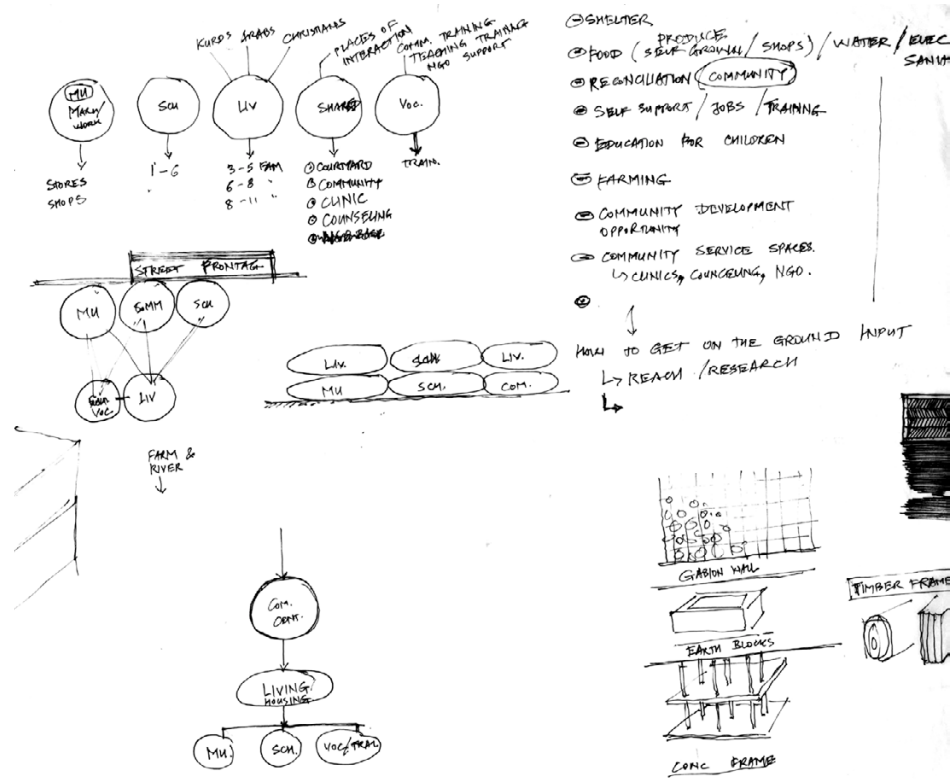 KURDS ARABS CHRISTIANS
PLACES OF
INTERACTION
COMM. TRAINING
TEACHING TRAINING
NGO SUPPORT
MU
MARK/
WORK
SCH
LIV
SHARED
VOC.
STORES
SHOPS
1-6
3-5 FAM
6-8 "
8-11 "
COURTYARD
COMMUNITY
CLINIC
COUNSELING
TRAIN.
STREET FRONTAG
MU
COMM
SCH
VOC.
LIV
FARM &
RIVER
LIV.
LIV.
MU
SCH.
COM.
COM.
CENT.
LIVING/
HOUSING
MU.
SCH.
VOC/TRAI.
SHELTER
PRODUCE
FOOD (SELF GROWN / SHOPS) / WATER / ELEC
SANI
RECONCILIATION COMMUNITY
SELF SUPPORT / JOBS / TRAINING
EDUCATION FOR CHILDREN
FARMING
COMMUNITY DEVELOPMENT
OPPORTUNITY
COMMUNITY SERVICE SPACES.
CLINICS, COUNCELING, NGO.
HOW TO GET ON THE GROUND INPUT
REACH / RESEARCH
GABION WALL
EARTH BLOCKS
CONC FRAME
TIMBER FRAME